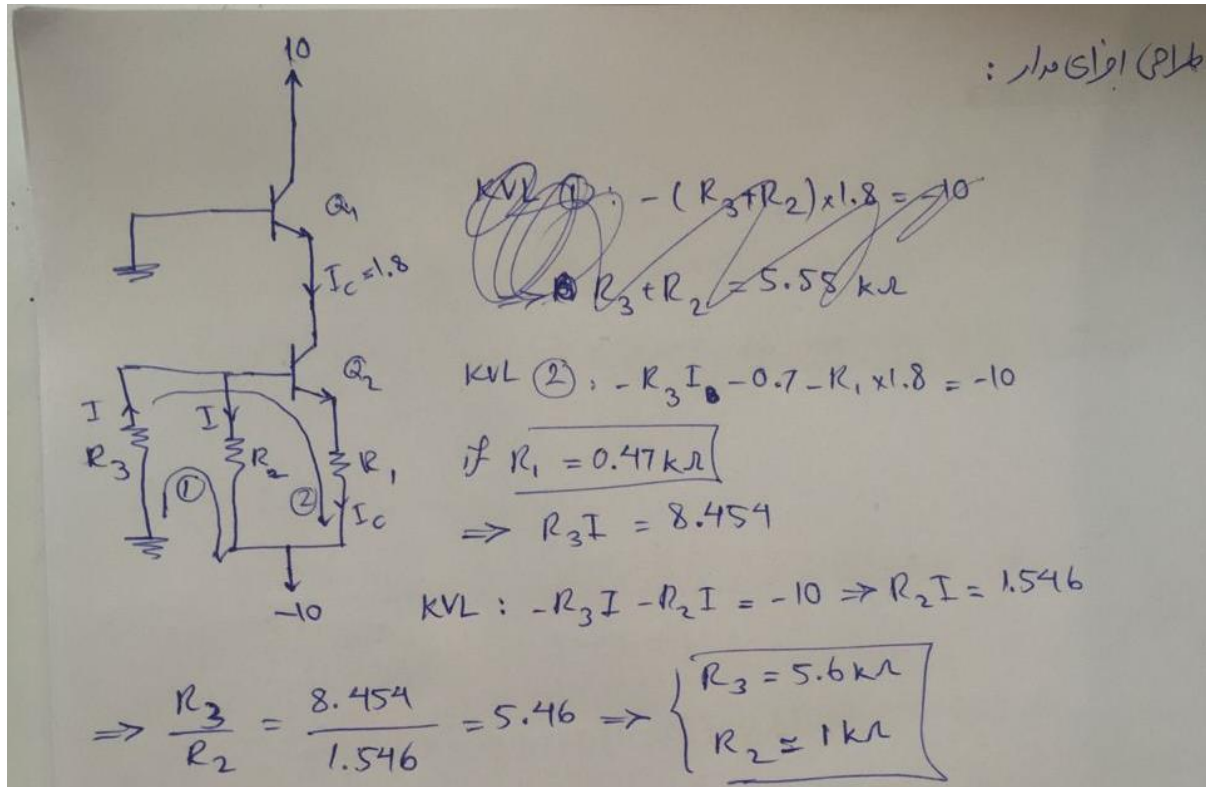 طراحی اجزای مدار :
10
Q₁
I_C = 1.8
Q₂
I
R₃
I
R₂
R₁
①
②
I_C
-10
KVL ① : - ( R₃ + R₂ ) × 1.8 = -10
R₃ + R₂ = 5.58 kΩ
KVL ② : - R₃ I - 0.7 - R₁ × 1.8 = -10
if R₁ = 0.47 kΩ
⇒ R₃ I = 8.454
KVL : - R₃ I - R₂ I = -10 ⇒ R₂ I = 1.546
⇒ R₃ / R₂ = 8.454 / 1.546 = 5.46 ⇒ { R₃ = 5.6 kΩ
R₂ ≃ 1 kΩ